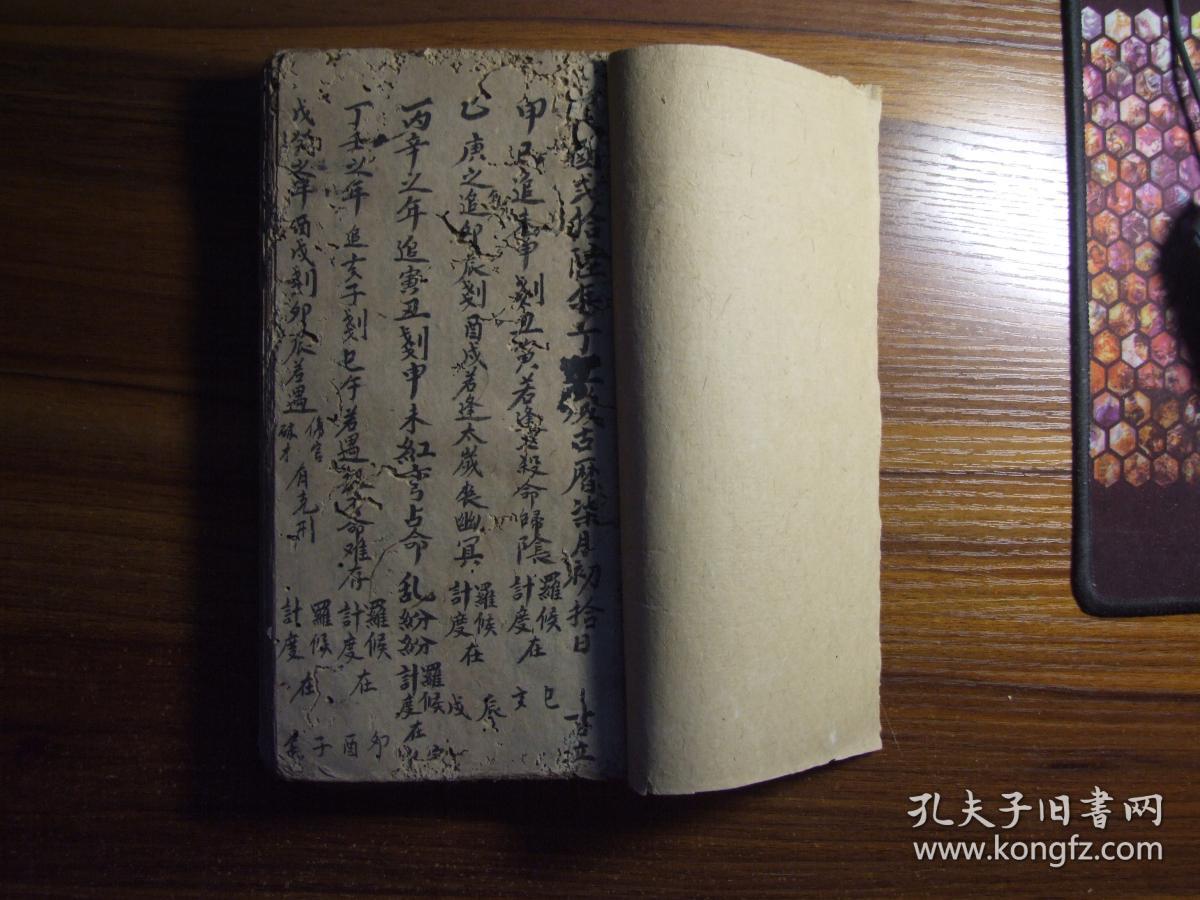 國弍拾陸年 古曆柒月初拾日 吉立
甲己追未申剋丑寅若逢 殺命歸陰 羅候計度在 巳亥
乙庚之追卯辰剋酉戍若逢太歲丧幽冥 羅候計度在 辰戍
丙辛之年追寅丑剋申未紅 占命乱紛紛 羅候計度在
丁壬之年追亥子剋巳午若遇 命难存 羅候計度在 卯酉
戊癸之年酉戍剋卯辰若遇 傷官破才 有克刑 羅候計度在 子
孔夫子旧書网
www.kongfz.com